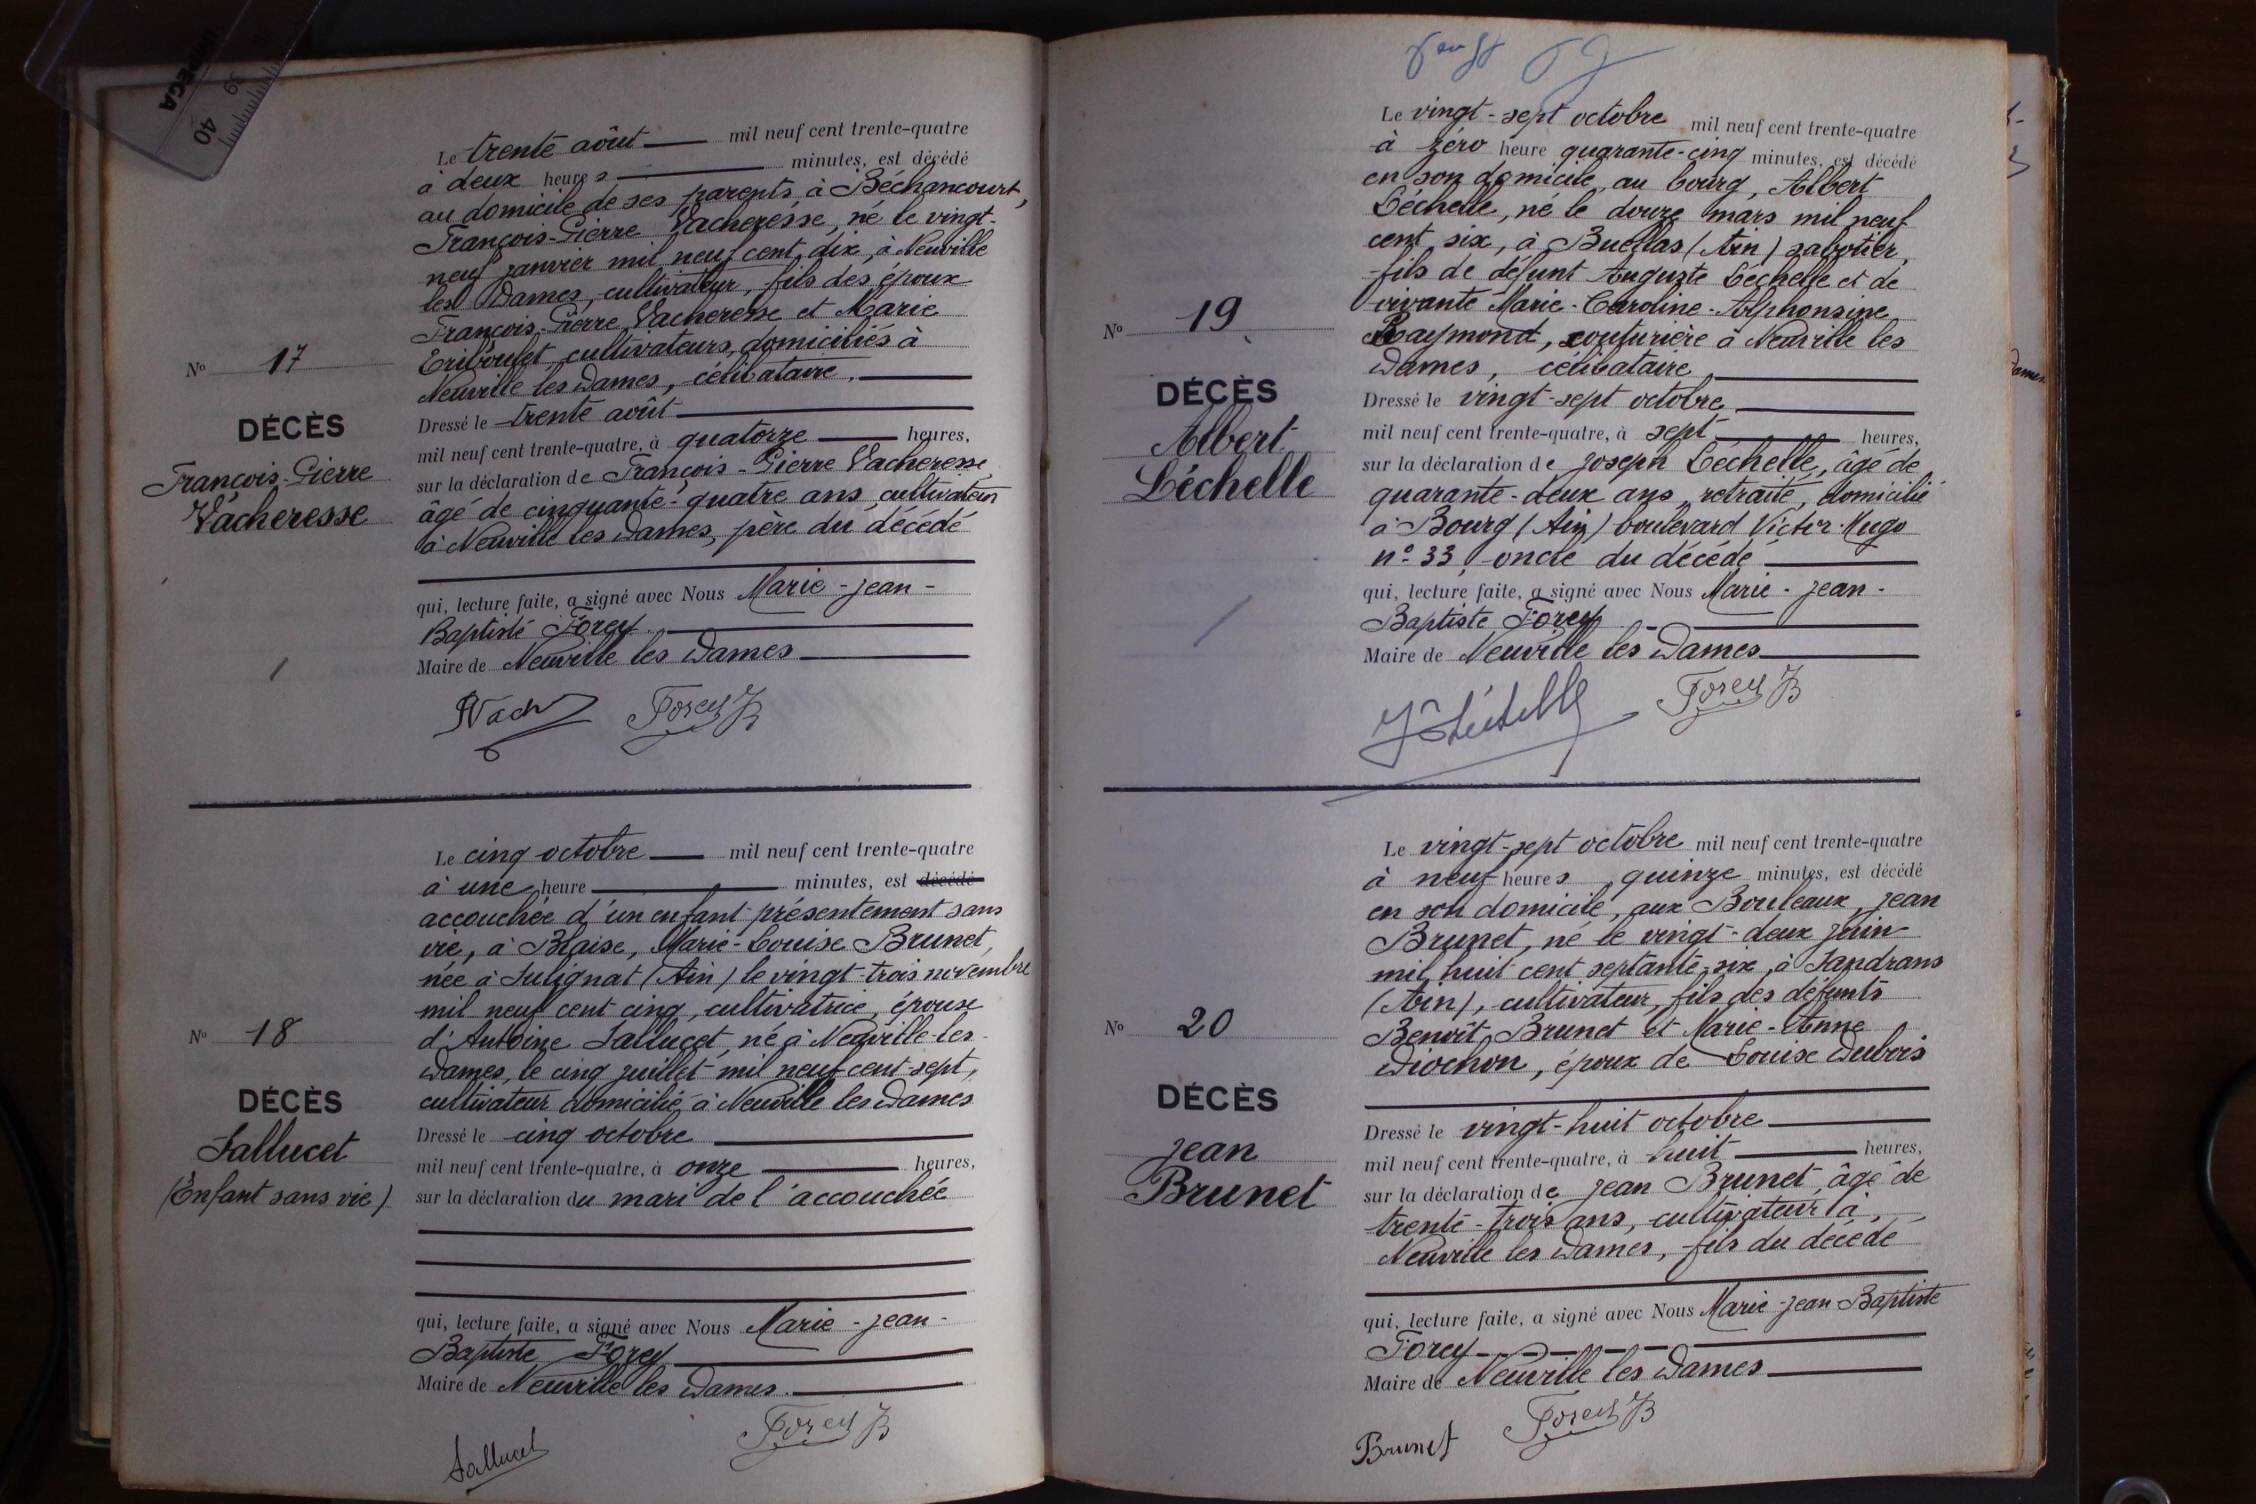 39
40
Le trente août mil neuf cent trente-quatre
à deux heures minutes, est décédé
au domicile de ses parents, à Béchancourt,
François-Pierre Vacheresse, né le vingt-
neuf janvier mil neuf cent dix, à Neuville
les Dames, cultivateur, fils des époux
François-Pierre Vacheresse et Marie
cultivateurs, domiciliés à
Neuville les Dames, célibataire.
Nº 17
DÉCÈS
François-Pierre
Vacheresse
Dressé le trente août
mil neuf cent trente-quatre, à quatorze heures,
sur la déclaration de François-Pierre Vacheresse,
âgé de cinquante-quatre ans, cultivateur
à Neuville les Dames, père du décédé
qui, lecture faite, a signé avec Nous Marie-Jean-
Baptiste Forey
Maire de Neuville les Dames
Forey B
Le cinq octobre mil neuf cent trente-quatre
à une heure minutes, est décédé
accouchée d'un enfant présentement sans
vie, à Blaise, Marie-Louise Brunet,
née à Sulignat (Ain) le vingt-trois novembre
mil neuf cent cinq, cultivatrice, épouse
d'Antoine Sallucet, né à Neuville-les-
Dames, le cinq juillet mil neuf cent sept,
cultivateur domicilié à Neuville les Dames
Nº 18
DÉCÈS
Sallucet
(Enfant sans vie)
Dressé le cinq octobre
mil neuf cent trente-quatre, à onze heures,
sur la déclaration du mari de l'accouchée
qui, lecture faite, a signé avec Nous Marie-Jean-
Baptiste Forey
Maire de Neuville les Dames.
Sallucet
Forey B
Le vingt-sept octobre mil neuf cent trente-quatre
à zéro heure quarante-cinq minutes, est décédé
en son domicile, au bourg, Albert
Léchelle, né le douze mars mil neuf
cent six, à Buellas (Ain) sabotier,
fils de défunt Auguste Léchelle et de
vivante Marie-Caroline-Alphonsine
Raymond, couturière à Neuville les
Dames, célibataire
Nº 19
DÉCÈS
Albert
Léchelle
Dressé le vingt-sept octobre
mil neuf cent trente-quatre, à sept heures,
sur la déclaration de Joseph Léchelle, âgé de
quarante-deux ans, retraité, domicilié
à Bourg (Ain) boulevard Victor-Hugo
nº 33, oncle du décédé
qui, lecture faite, a signé avec Nous Marie-Jean-
Baptiste Forey
Maire de Neuville les Dames
Forey B
Le vingt-sept octobre mil neuf cent trente-quatre
à neuf heures quinze minutes, est décédé
en son domicile, aux Bouleaux, Jean
Brunet, né le vingt-deux juin
mil huit cent septante-six, à Sandrans
(Ain), cultivateur, fils des défunts
Benoît Brunet et Marie-Anne
Diochon, époux de Louise Dubois
Nº 20
DÉCÈS
Jean
Brunet
Dressé le vingt-huit octobre
mil neuf cent trente-quatre, à huit heures,
sur la déclaration de Jean Brunet, âgé de
trente-trois ans, cultivateur à
Neuville les Dames, fils du décédé
qui, lecture faite, a signé avec Nous Marie-Jean Baptiste
Forey
Maire de Neuville les Dames
Brunet
Forey B